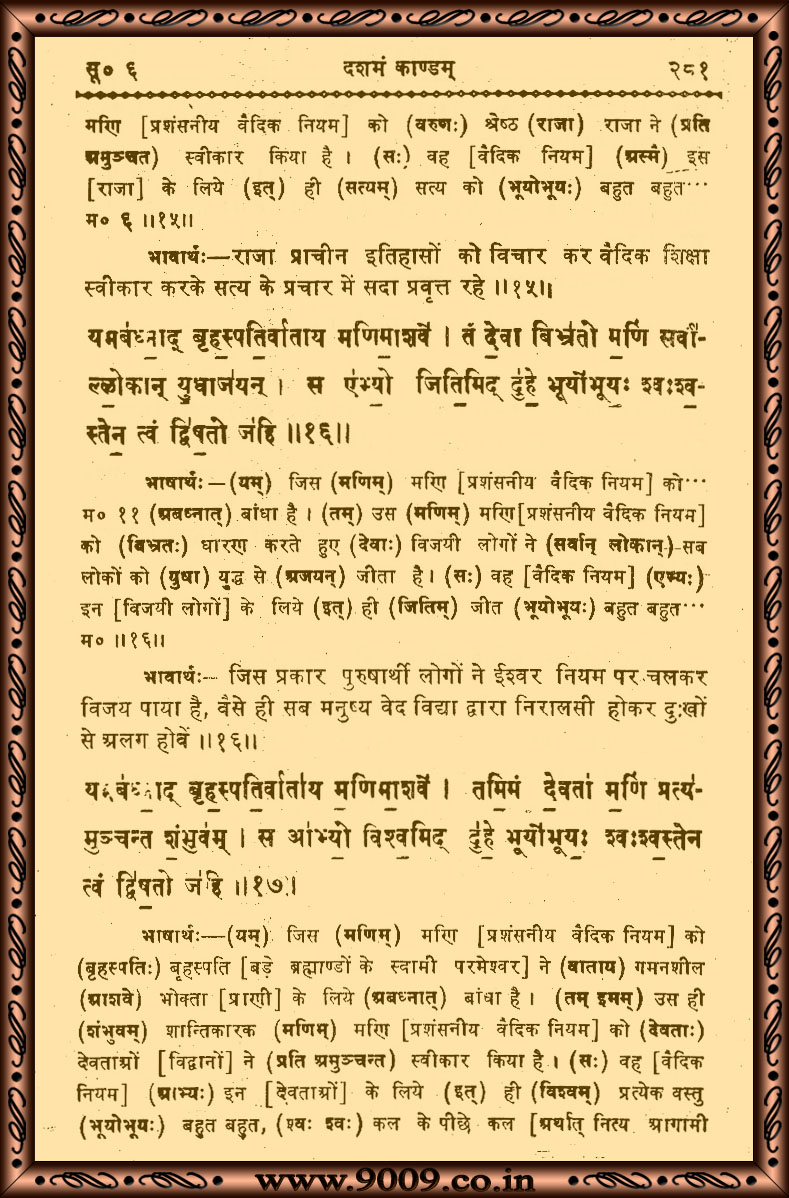 सू० ६ दशमं काण्डम् २८१
मणि [प्रशंसनीय वैदिक नियम] को (वरुणः) श्रेष्ठ (राजा) राजा ने (प्रति
अमुञ्चत) स्वीकार किया है । (सः) वह [वैदिक नियम] (अस्मै) इस
[राजा] के लिये (इत्) ही (सत्यम्) सत्य को (भूयोभूयः) बहुत बहुत···
म० ६ ॥१५॥
भावार्थः—राजा प्राचीन इतिहासों को विचार कर वैदिक शिक्षा
स्वीकार करके सत्य के प्रचार में सदा प्रवृत्त रहे ॥१५॥
यमब॑ध्ना॒द् बृह॒स्पति॒र्वाता॑य म॒णिमा॒शवे॑ । तं दे॒वा बिभ्र॑तो म॒णिं सर्वाँ॑-
ल्लो॒कान् यु॒धाज॑यन् । स ए॑भ्यो॒ जिति॒मिद् दु॑हे॒ भूयो॑भूयः॒ श्वःश्व॒-
स्तेन॒ त्वं द्वि॑ष॒तो ज॑हि ॥१६॥
भाषार्थः—(यम्) जिस (मणिम्) मणि [प्रशंसनीय वैदिक नियम] को···
म० ११ (अबध्नात्) बांधा है । (तम्) उस (मणिम्) मणि[प्रशंसनीय वैदिक नियम]
को (बिभ्रतः) धारण करते हुए (देवाः) विजयी लोगों ने (सर्वान् लोकान्) सब
लोकों को (युधा) युद्ध से (अजयन्) जीता है । (सः) वह [वैदिक नियम] (एभ्यः)
इन [विजयी लोगों] के लिये (इत्) ही (जितिम्) जीत (भूयोभूयः) बहुत बहुत···
म० ॥१६॥
भावार्थः— जिस प्रकार पुरुषार्थी लोगों ने ईश्वर नियम पर चलकर
विजय पाया है, वैसे ही सब मनुष्य वेद विद्या द्वारा निरालसी होकर दुःखों
से अलग होवें ॥१६॥
यमब॑ध्ना॒द् बृह॒स्पति॒र्वाता॑य म॒णिमा॒शवे॑ । तमि॒मं दे॒वता॑ म॒णिं प्रत्य॑-
मुञ्चन्त शं॒भुव॑म् । स आ॑भ्यो॒ विश्व॒मिद् दु॑हे॒ भूयो॑भूयः॒ श्वःश्व॒स्तेन
त्वं द्वि॑ष॒तो ज॑हि ॥१७॥
भाषार्थः—(यम्) जिस (मणिम्) मणि [प्रशंसनीय वैदिक नियम] को
(बृहस्पतिः) बृहस्पति [बड़े ब्रह्माण्डों के स्वामी परमेश्वर] ने (वाताय) गमनशील
(आशवे) भोक्ता [प्राणी] के लिये (अबध्नात्) बांधा है । (तम् इमम्) उस ही
(शंभुवम्) शान्तिकारक (मणिम्) मणि [प्रशंसनीय वैदिक नियम] को (देवताः)
देवताओं [विद्वानों] ने (प्रति अमुञ्चन्त) स्वीकार किया है । (सः) वह [वैदिक
नियम] (आभ्यः) इन [देवताओं] के लिये (इत्) ही (विश्वम्) प्रत्येक वस्तु
(भूयोभूयः) बहुत बहुत, (श्वः श्वः) कल के पीछे कल [अर्थात् नित्य आगामी
www.9009.co.in